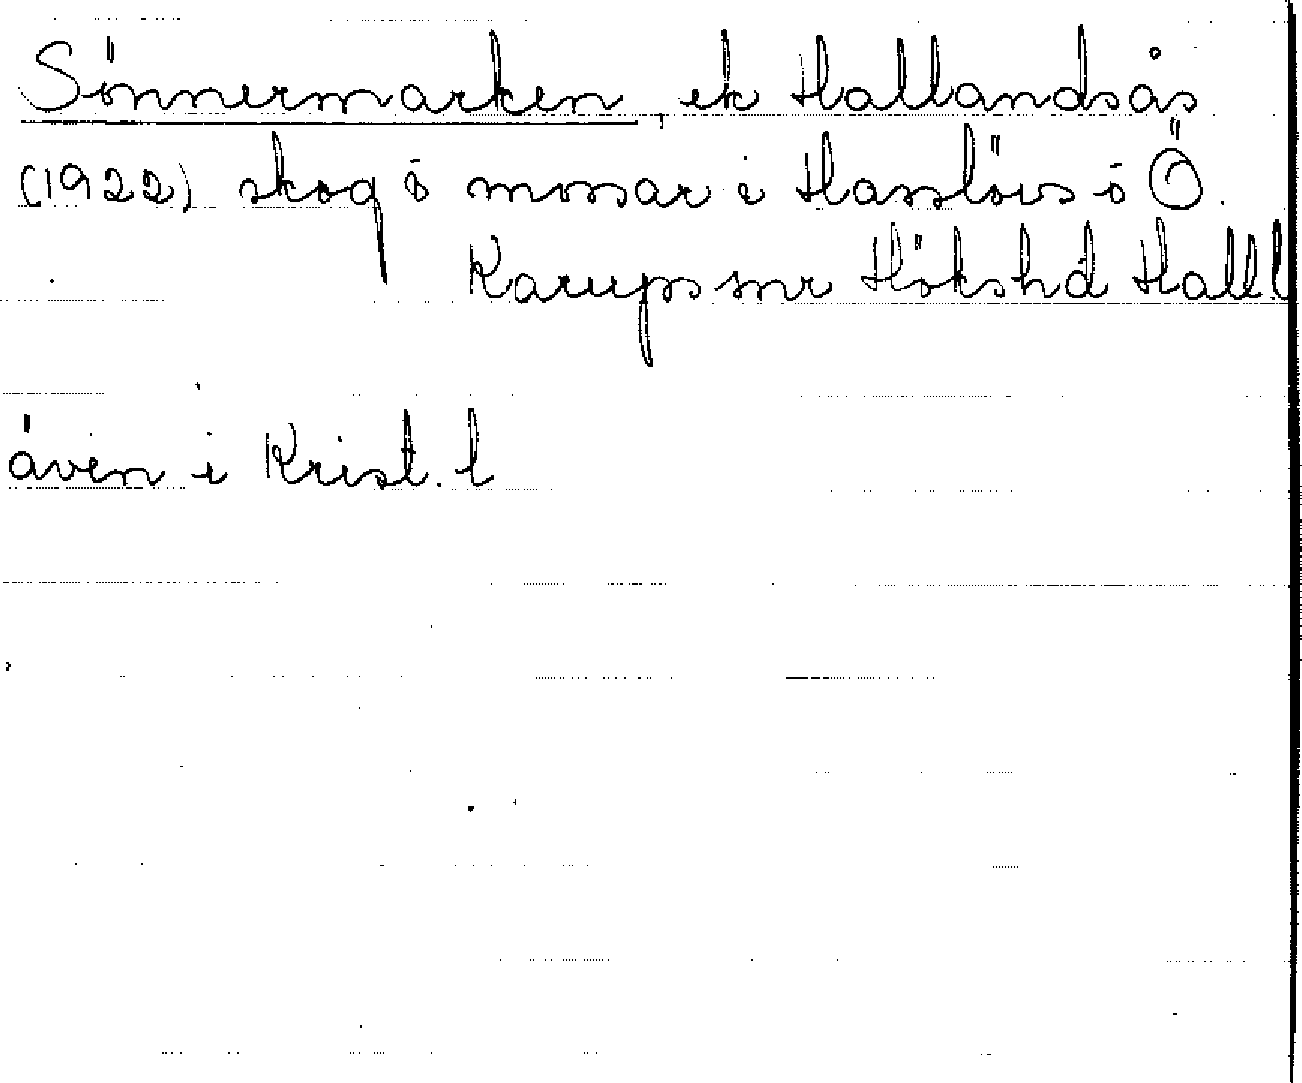 Sönnermarken, ek Hallandsås
(1922) skog ō mossar i Hasslövs ō Ö.
Karups snr Hökshd Hall l
även i Krist. l